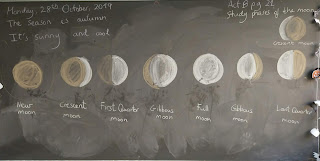 Monday, 28th October, 2019
The season is autumn
It's sunny and cool
Act B pg 21
Study phases of the moon
Crescent moon
New moon
Crescent moon
First Quarter moon
Gibbous moon
Full moon
Gibbous moon
Last Quarter moon